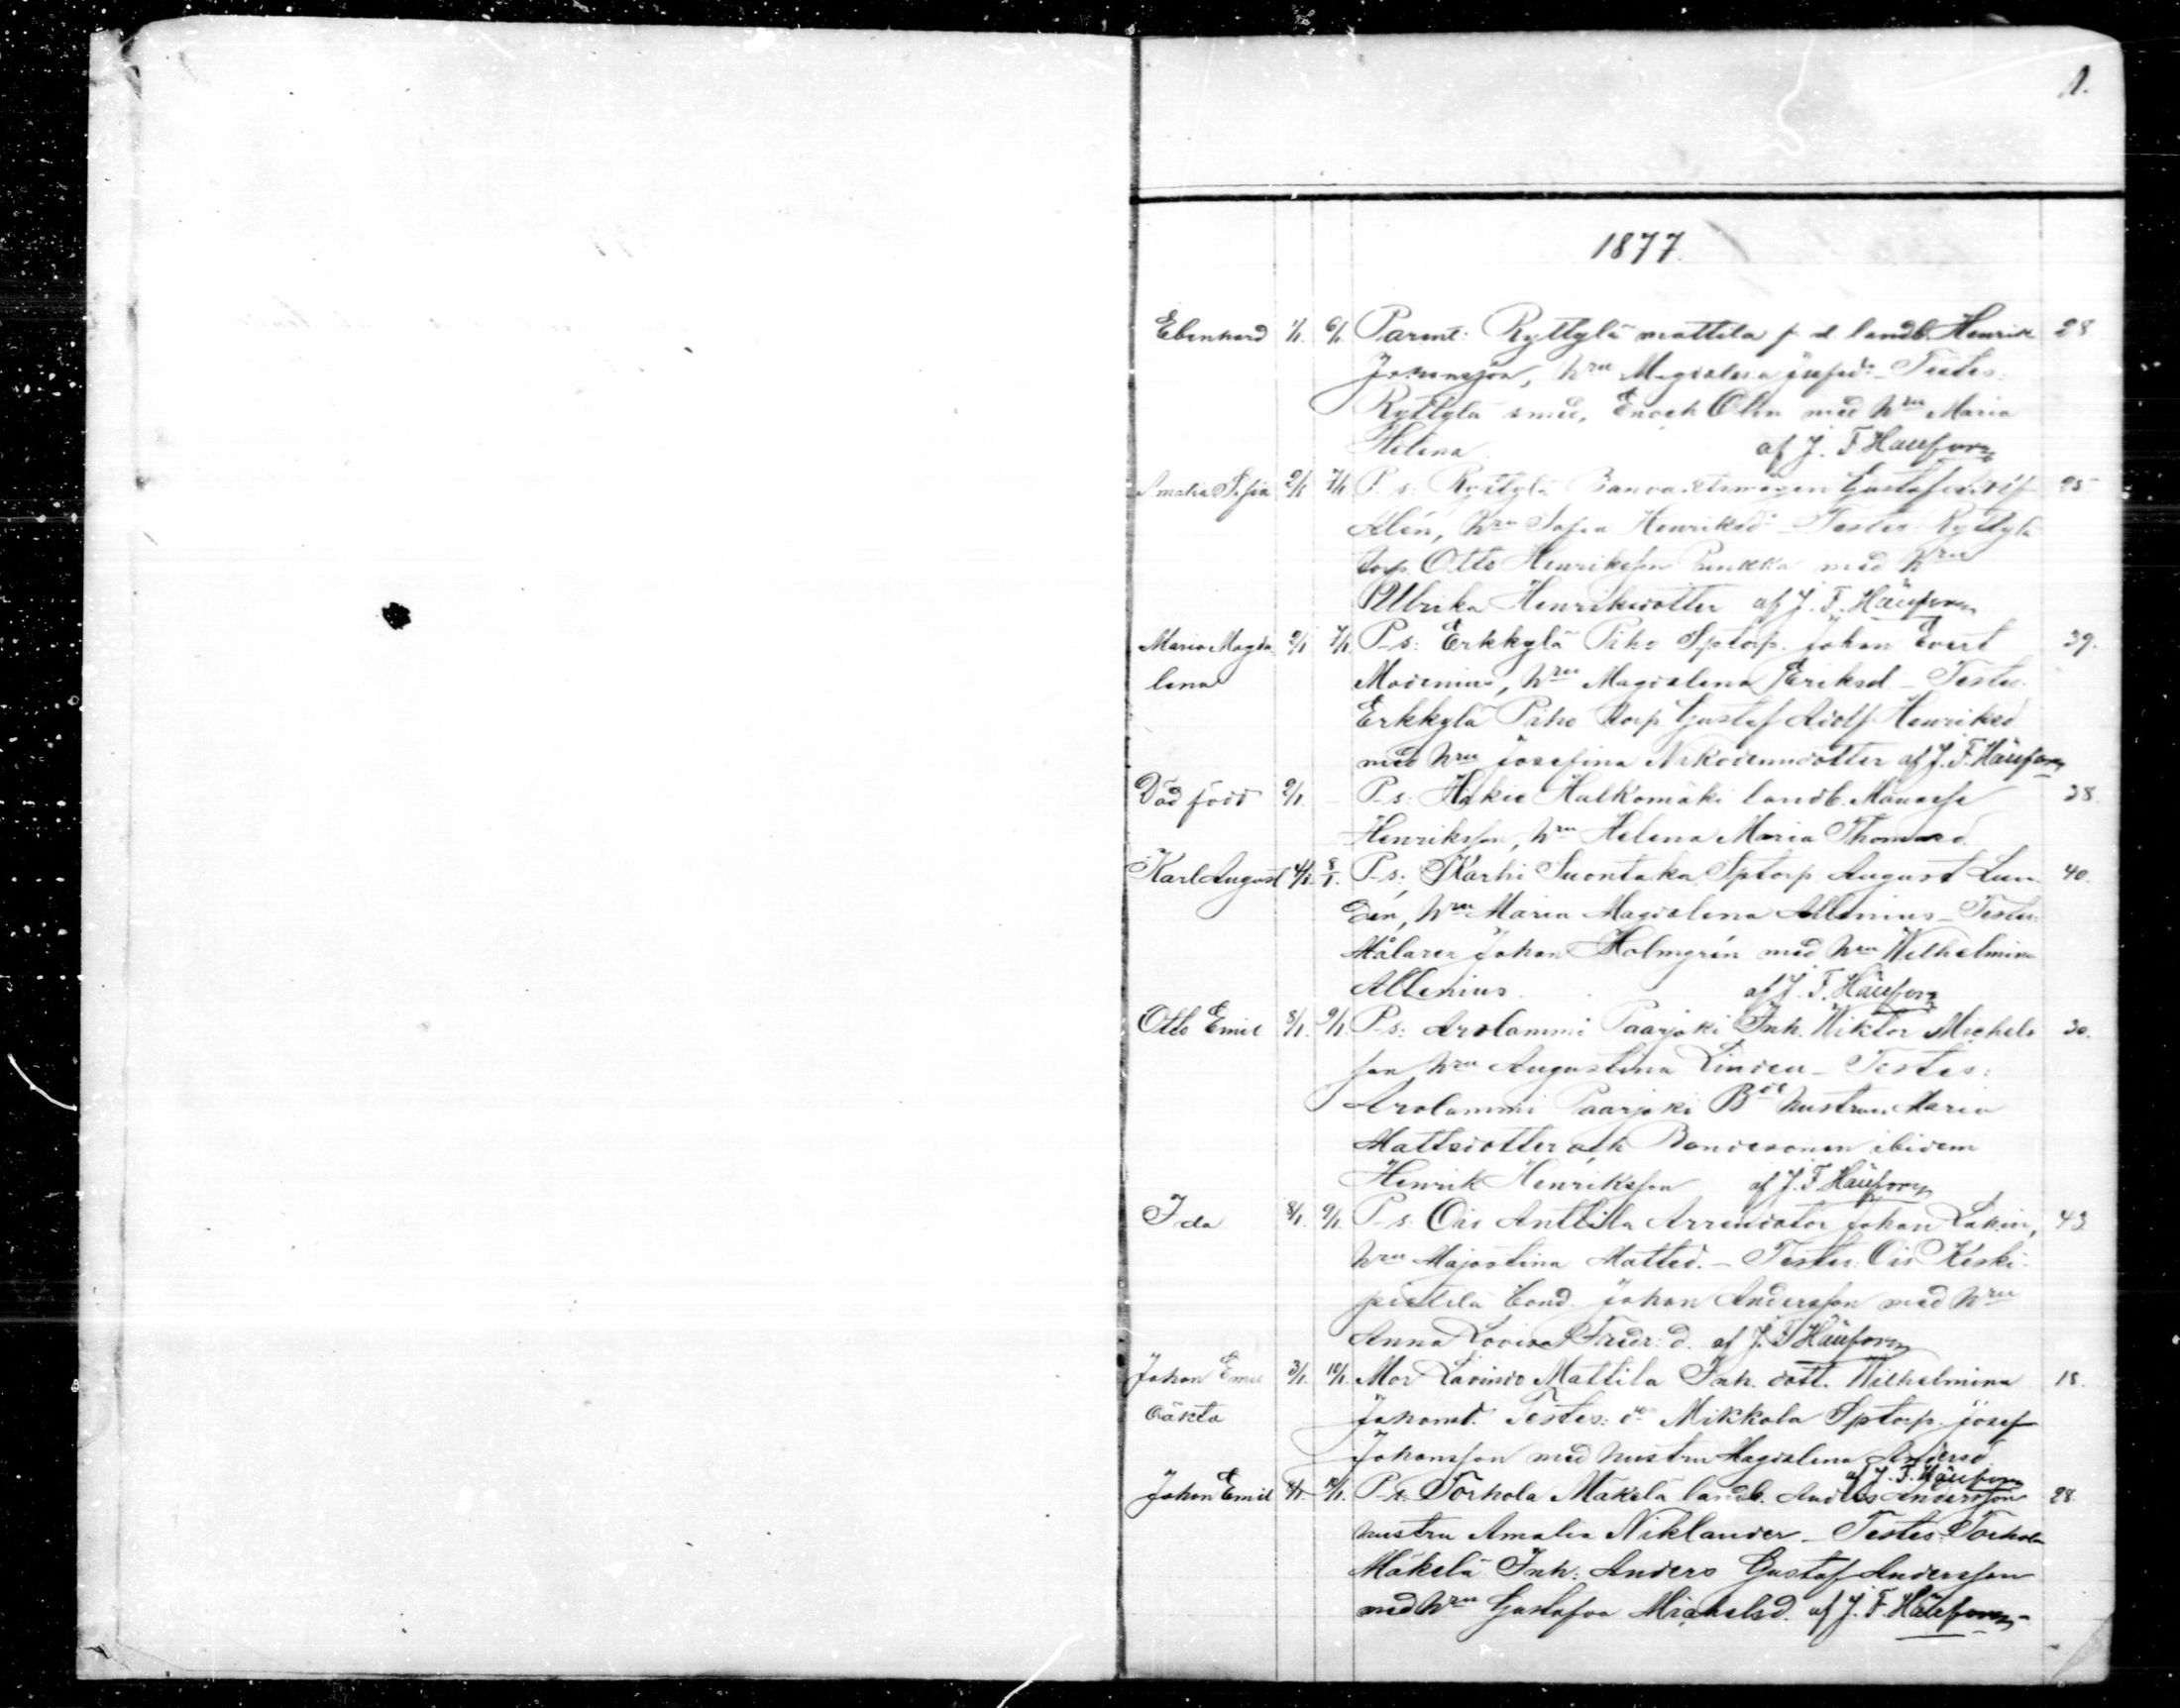 1.
1877.
Ebenhard 1/1. 6/1. Parent: Ryttylä mattila f. d. landb. Henrik 28
Johansson, hru Magdalena Josefsdr – Testes:
Ryttylä smed, Enoch Olin med hru Maria
Helena af J. F. Häusforn
Amalia Sofia 2/1 7/1 P-s: Ryttylä Banvaktsmagen Gustaf Adolf 25
Alén, hru Sofia Henriksdr – Testes Ryttylä
torp. Otto Henriksson Punkka med hru
Ulrika Henriksdotter af J. F. Häusforn
Maria Magda 2/1 7/1. P-s: Erkkylä Piho Sptorp. Johan Evert 39.
lena Modenius, hru Magdalena Eriksd – Testes:
Erkkylä Piho torp Gustaf Adolf Henriksd
med hru Josefina Nikodemidotter af J. F. Häusforn
Död född 2/1. P-s: Hikiö Halkomäki landb. Manasse 38.
Henriksson, hru Helena Maria Thomasd.
Karl August 4/1. 8/1. P-s: Karhi Suontaka Sptorp August Lun 40.
dén, hru Maria Magdalena Allenius – Testes:
Målaren Johan Holmgrén med hru Wilhelmina
Allenius. af J. F. Häusforn
Otto Emil 8/1. 9/1. P-s: Arolammi Paarjoki Inh. Wiktor Michels 30.
son hru Augustina Linden – Testes:
Arolammi Paarjoki Bde hustrun Maria
Mattsdotter och Bondesonen ibidem
Henrik Henriksson af J. F. Häusforn
Ida 8/1. 9/1. P-s: Ois Anttila Arrendator Johan Lakin, 43
hru Majastina Mattsd. – Testes: Ois Keski-
pietilä bond. Johan Andersson med hru
Anna Lovisa Fredr: d. af J. F. Häusforn
Johan Emil 3/1. 10/1. Mor Lavindo Mattila Inh. dott. Wilhelmina 18.
oäkta Johansd. Testes: do Mikkola Sptorp. Josef
Johansson med hustru Magdalena Andersd
af J. F. Häusforn
Johan Emil 8/1. 10/1. P-s: Torhola Mäkelä landb. Anders Andersson 28.
hustru Amalia Niklander – Testes: Torhola
Mäkelä Inh: Anders Gustaf Andersson
med hru Gustafva Michelsd. af J. F. Häusforn